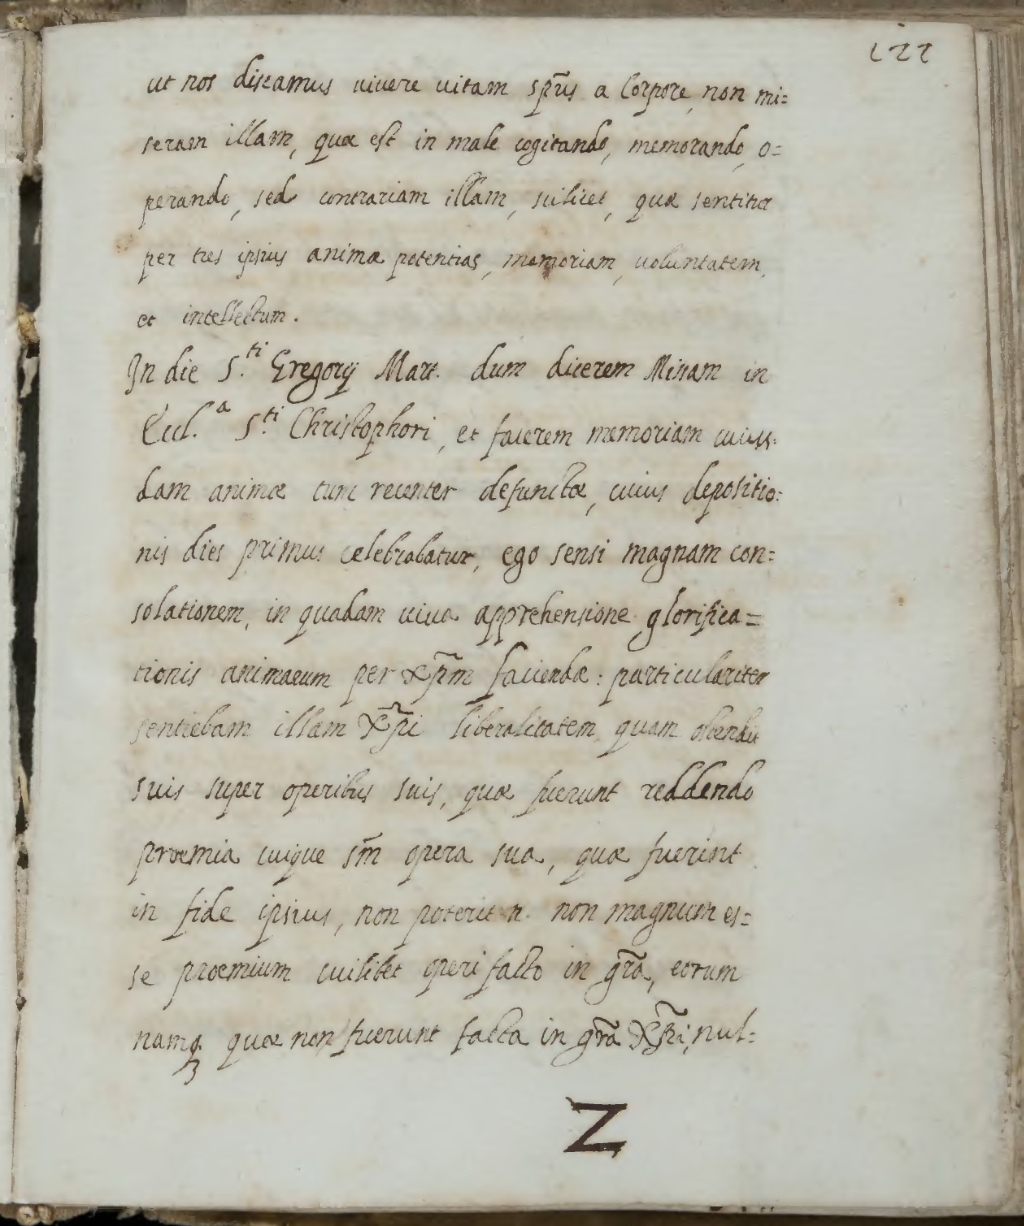 177
ut nos discamus uiuere uitam sp̃us a Corpore, non mi=
seram illam, quæ est in male cogitando, memorando, o=
perando, sed contrariam illam, scilicet, quæ sentitur
per tres ipsius animæ potentias, memoriam, uoluntatem,
et intellectum.
In die S.ti Gregorij Mart. dum dicerem Missam in
Eccl.a S.ti Christophori, et facerem memoriam cuius=
dam animæ tunc recenter defunctæ, cuius depositio=
nis dies primus celebrabatur, ego sensi magnam con=
solationem, in quadam uiua apprehensione glorifica=
tionis animarum per Xp̃m faciendæ: particulariter
sentiebam illam Xp̃i liberalitatem, quam ostendit
suis super operibus suis, quæ fuerunt reddendo
præmia cuique sm̃ opera sua, quæ fuerint
in fide ipsius, non poterit n. non magnum es=
se præmium cuilibet operi facto in gr̃a, eorum
namq3 quæ non fuerunt facta in gr̃a Xp̃i, nul=
Z